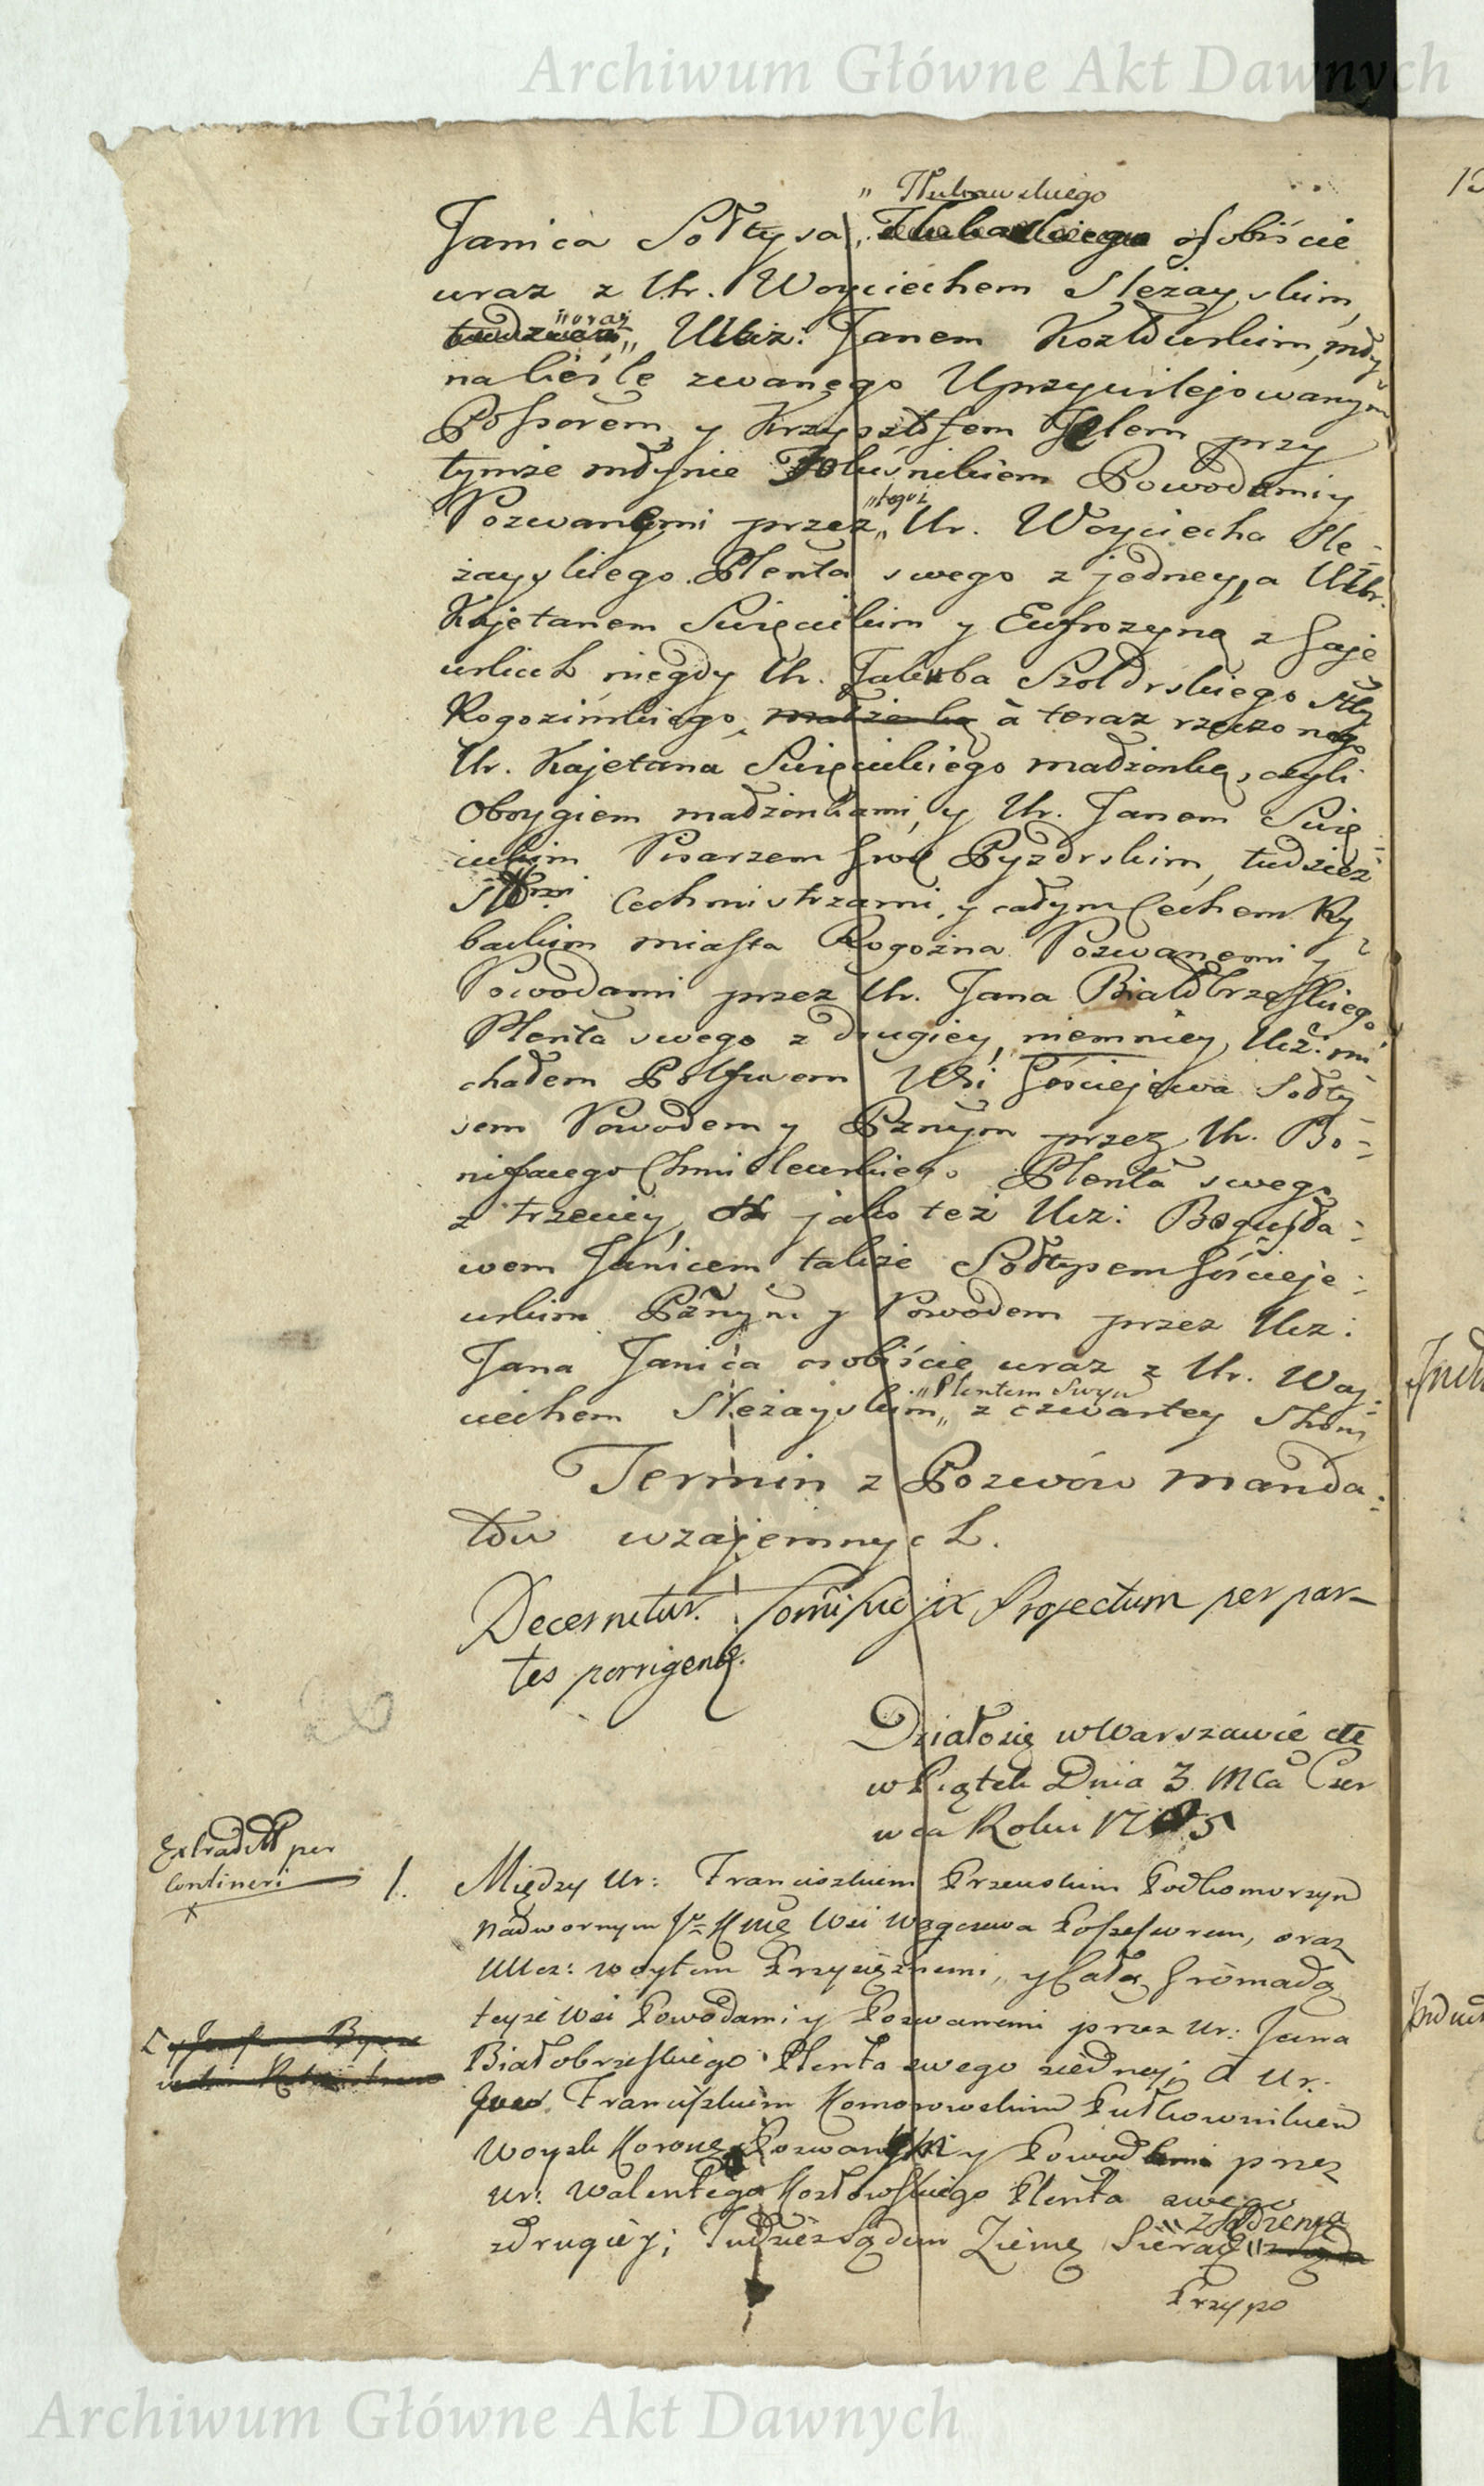 Archiwum Główne Akt Dawnych
„ Tłukawskiego
Janica Sołtysa „ osobiście
wraz z Ur. Woyciechem Slężayskim,
„oraz
Ucz: Janem Kozłowskim, mły
na zwanego Uprzywilejowanym
Possorem y Krzysztofem przy
tymże młynie Powodami y
„tegoż
Pozwanemi przez „ Ur. Woyciecha Slę-
żayskiego Plenta swego z jedney, a Uhr.
Kajetanem Swięcickim y Eufrozyną z Gaje
wskich niegdy Ur. Jakuba Szołdrskiego
Rogozińskiego, małżonką a teraz rzeczonego
Ur. Kajetana Swięcickiego małżonką, czyli
Oboygiem małżonkami, y Ur. Janem Swię-
cickim Pisarzem Grod Pyzdrskim, tudzież
Cechmistrzami, y całym Cechem Ry-
backim miasta Rogoźna Pozwanemi y
Powodami przez Ur. Jana Białobrzeskiego
Plenta swego z drugiey, niemniey Ucz: Mi
chałem Wsi Gościejewa Sołty-
sem Powodem y Poznym przez Ur. Bo-
nifacego Chmielewskiego Plenta swego
z trzeciey, jako też Ucz: Bogusła-
wem Janicem także Sołtysem Gościeje-
wskim Poznym y Powodem przez Ucz:
Jana Janica osobiście wraz z Ur. Woy-
ciechem Slężayskim „ Plentem Swym „ z czwartey Strony
Termin z Pozwów Manda-
tów wzajemnych.
Decernetur. ex Projectum per par-
tes porrigend.
26
Działo się w Warszawie
w Piątek Dnia 3 Mca Czer
wca Roku 1785
Extradtt per
Contineri
1. Między Ur: Franciszkiem Podkomorzym
Nadwornym J K Mci Wsi Possessorem, oraz
Ucz: Woytem Przysiężnemi, y całą Gromadą
teyże Wsi Powodami y Pozwanemi przez Ur: Jana
Białobrzeskiego Plenta swego z iedney; a Ur:
Franciszkiem Komorowskim Pułkownikiem
Woysk Koronę Pozwanym y Powodem przez
Ur: Walentego Kozłowskiego Plenta swego
z drugiey; Tudzież Sądem Ziemę Sieradz „ z Sądzenią „
Przypo
Archiwum Główne Akt Dawnych